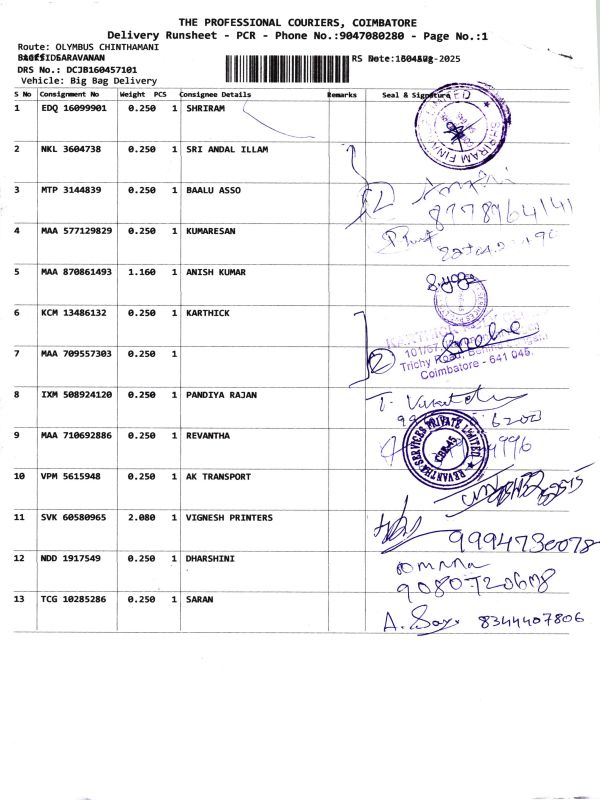 THE PROFESSIONAL COURIERS, COIMBATORE
Delivery Runsheet - PCR - Phone No.:9047080280 - Page No.:1
Route: OLYMBUS CHINTHAMANI
SARAVANAN
DRS No.: DCJB160457101
Vehicle: Big Bag Delivery
S No Consignment No Weight PCS Consignee Details Remarks Seal & Signature
1 EDQ 16099901 0.250 1 SHRIRAM
2 NKL 3604738 0.250 1 SRI ANDAL ILLAM
3 MTP 3144839 0.250 1 BAALU ASSO
8778964141
4 MAA 577129829 0.250 1 KUMARESAN
5 MAA 870861493 1.160 1 ANISH KUMAR
6 KCM 13486132 0.250 1 KARTHICK
7 MAA 709557303 0.250 1
Trichy Road,
Coimbatore - 641 045.
8 IXM 508924120 0.250 1 PANDIYA RAJAN
9 MAA 710692886 0.250 1 REVANTHA
REVANTHA SERVICES PRIVATE LIMITED
CBE-45
10 VPM 5615948 0.250 1 AK TRANSPORT
11 SVK 60580965 2.080 1 VIGNESH PRINTERS
9994730078
12 NDD 1917549 0.250 1 DHARSHINI
13 TCG 10285286 0.250 1 SARAN
8344407806